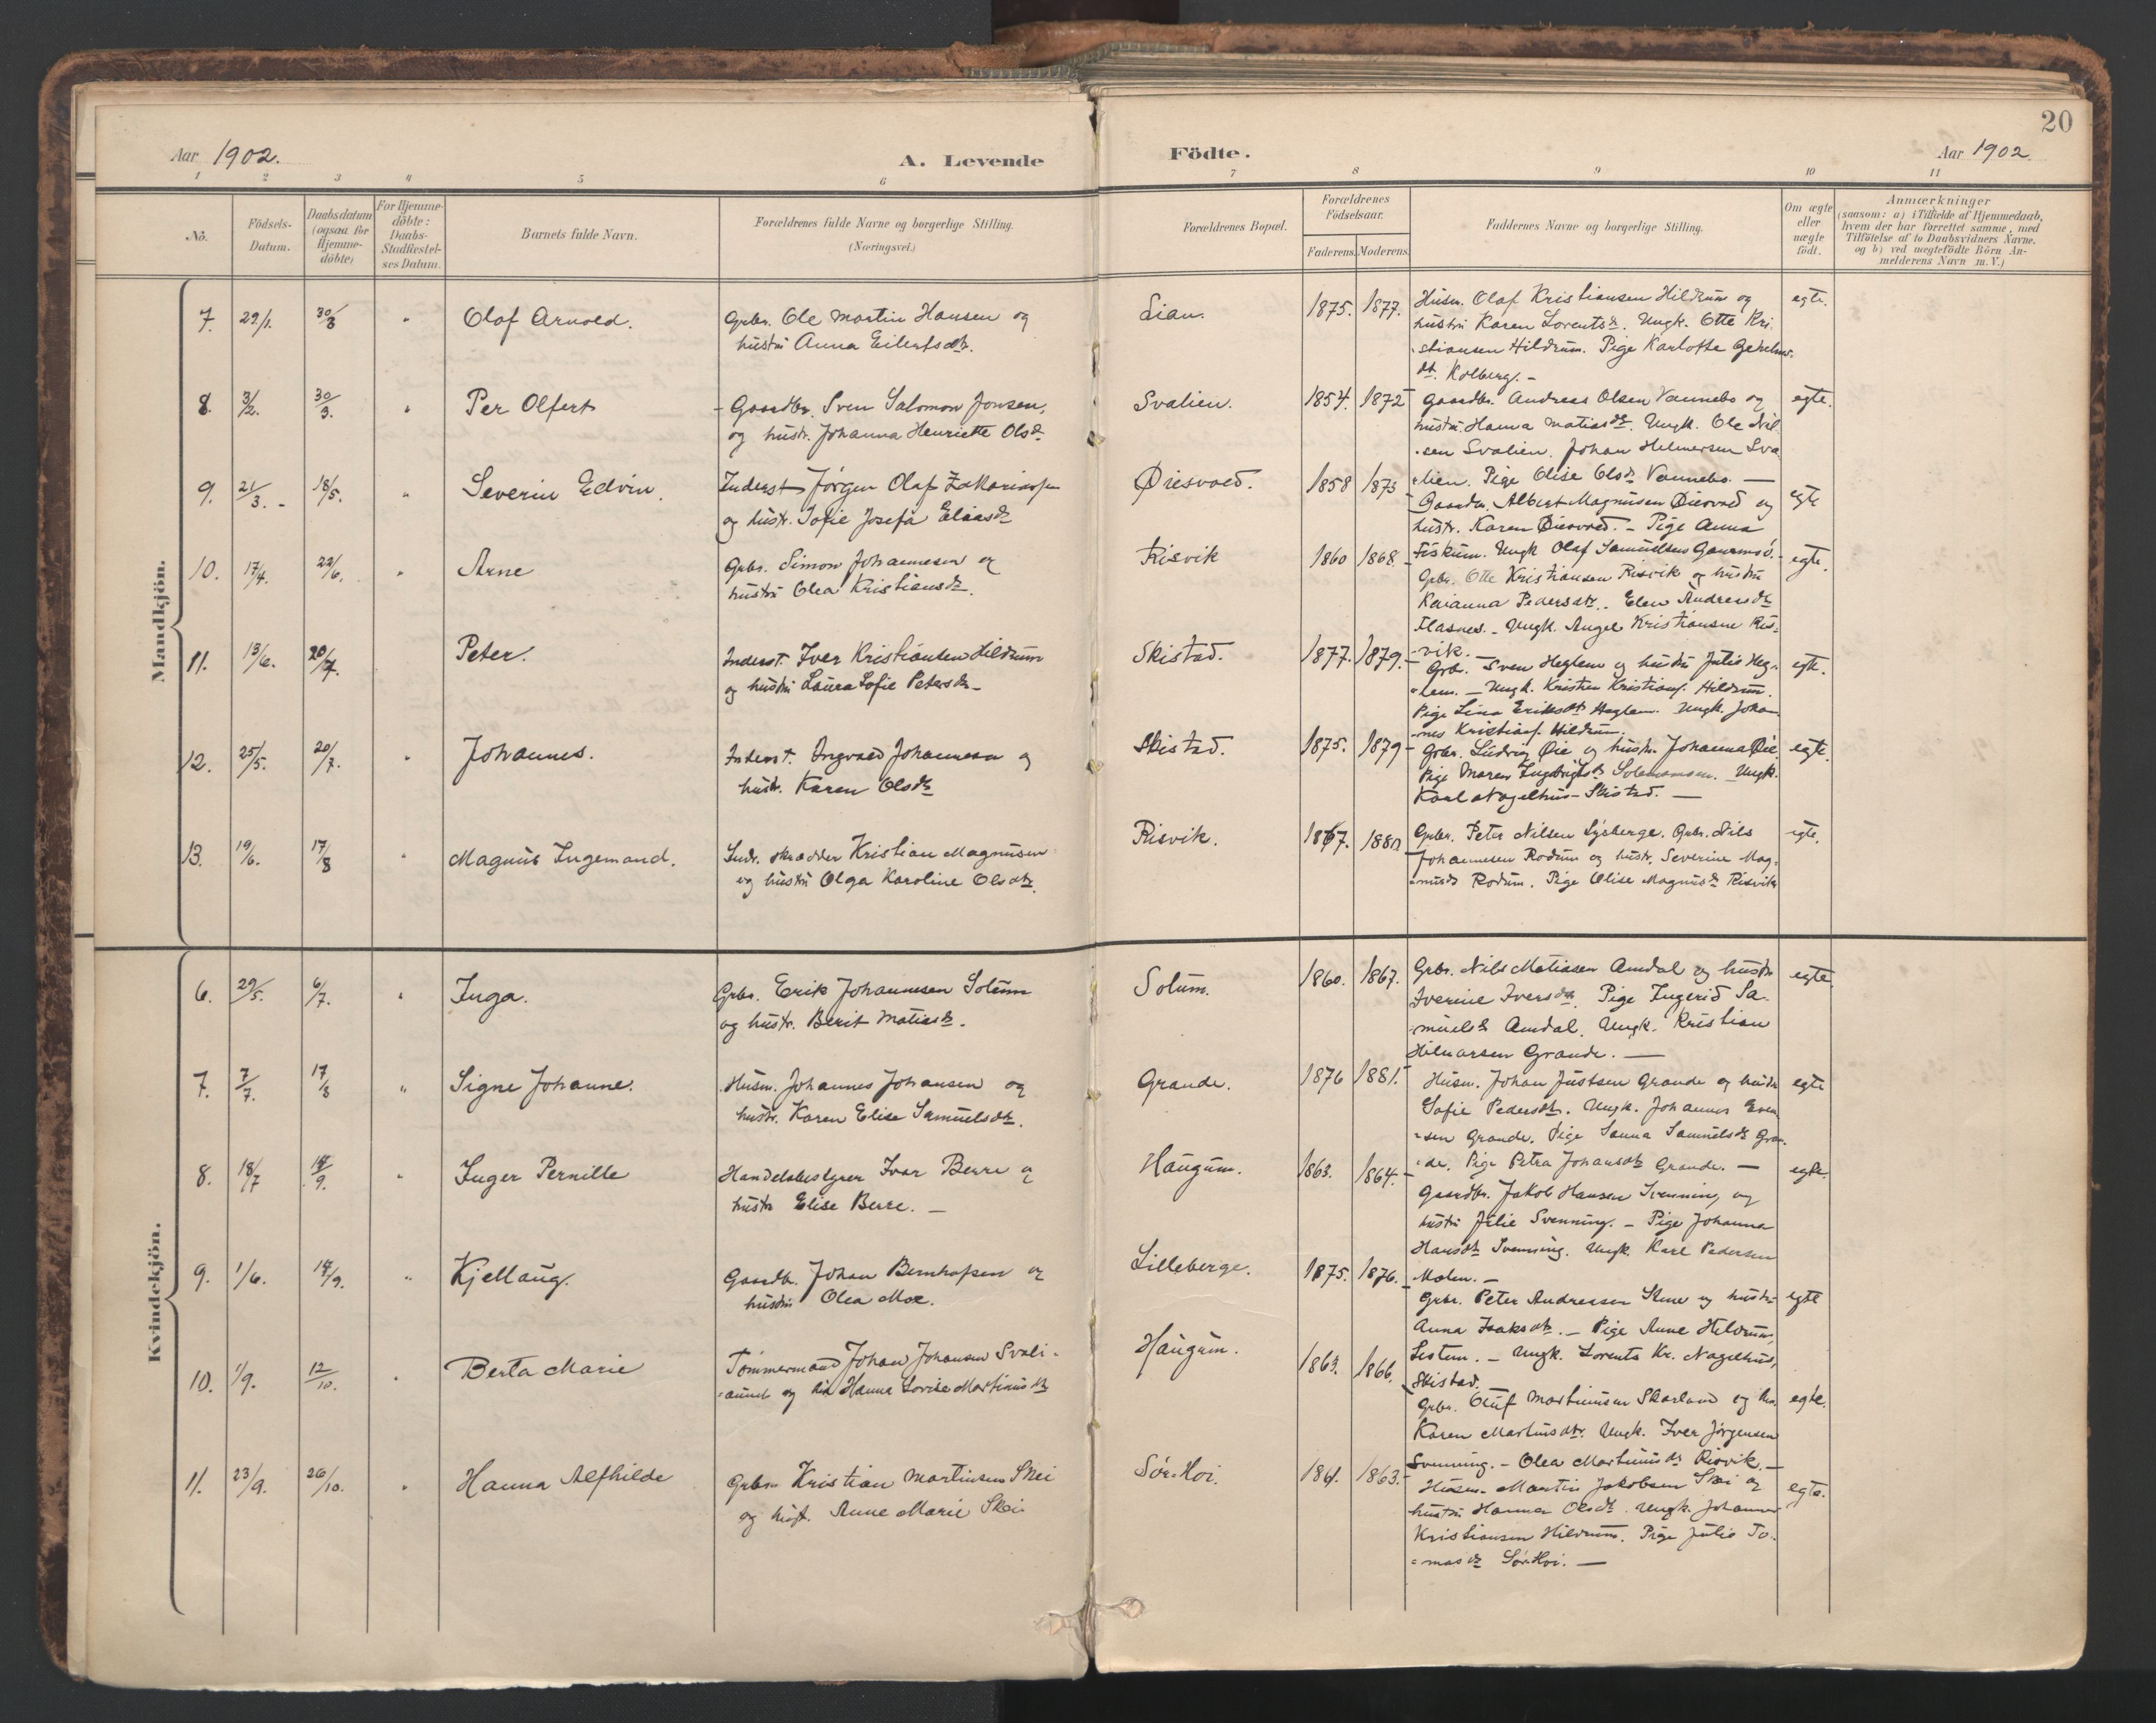 20
Aar 1902.
A. Levende
Födte.
Aar 1902
1 2 3 4 5 6 7 8 9 10 11
No.
Födsels-
Datum.
Daabsdatum
(ogsaa for
Hjemme-
döbte)
For Hjemme-
döbte:
Daabs-
Stadfæstel-
ses Datum.
Barnets fulde Navn.
Forældrenes fulde Navne og borgerlige Stilling.
(Næringsvei.)
Forældrenes Bopæl.
Forældrenes
Födselsaar.
Faderens. Moderens.
Faddernes Navne og borgerlige Stilling.
Om ægte
eller
uægte
födt.
Anmærkninger
(saasom: a) i Tilfælde af Hjemmedaab,
hvem der har forrettet samme, med
Tilföielse af to Daabsvidners Navne.
og b) ved uægtefödte Börn An-
melderens Navn m. V.)
Mandkjön.
7. 29/1. 30/3 " Olaf Arnold.
Gbr. Ole Martin Hansen og
hustru Anna Eilertsdtr.
Lian. 1875. 1877.
Husm. Olaf Kristiansen Hildrum og
hustru Karen Lorentsdr. Ungk. Otte Kri-
stiansen Hildrum. Pige Karlotte
dt. Kolberg. -
egte.
8. 3/2. 30/3. " Per Olfert
Gaardbr. Sven Salomon Jonsen,
og hustr. Johanna Henriette Olsdr
Svalien. 1854. 1872
Gaardbr. Andreas Olsen Vannebo og
hustru Hanna Matiasdr. Ungk. Ole Nil
sen Svalien. Johan Helmersen Sva
lien. Pige Olise Olsdr Vannebo. —
egte.
9. 21/3. - 18/5. " Severin Edvin.
Inderst Jörgen Olaf Zakariassen
og hustr. Sofie Josefa Eliasdr
Øiesvold. 1858 1873
Gaardbr. Albert Magnusen Øiesvold og
hustr. Karen Øiesvold. - Pige Anna
Fiskum. Ungk Olaf Samuelsen
egte
10. 17/4. 22/6. " Arne
Gbr. Simon Johannesen og
hustru Olea Kristiansdr.
Risvik 1860 1868.
Gbr. Otte Kristiansen Risvik og hustru
Karianna Pedersdtr. Elen Andreasdr
Flasnes. - Ungk. Angel Kristiansen Ris-
vik. -
egte.
11. 13/6. 20/7. Peter.
Inderst. Iver Kristiansen Hildrum
og hustru Laura Sofie Petersdr-
Skistad. 1877. 1879.
Grb. Sven Heglem og hustru Julie Heg-
lem. - Ungk. Kristen Kristians. Hildrum.
Pige Lina Eriksdtr Heglem. Ungk. Johan
nes Kristians. Hildrum.
egte.
12. 25/5. 20/7. " Johannes.
Inderst. Ingvald Johannesen og
hustr. Karen Olsdr
Skistad. 1875. 1879
Grbr. Ludvig Øie og hustr. Johanna Øie.
Pige Maren Ingebrigtsdr Solemamoen. Ungk.
Karl Nagelhus- Skistad. —
egte.
13. 19/6. 17/8 " Magnus Ingemand.
Indr. skrædder Kristian Magnusen
og hustru Olga Karoline Olsdtr.
Risvik. 1867. 1880
Grbr. Peter Nilsen Lysberge. Grbr. Nils
Johannesen Rodum og hustr. Severine Mag-
nusdr Rodum. Pige Olise Magnusdr Risvik
egte.
Kvindekjön.
6. 29/5. 6/7. " Inga.
Grbr. Erik Johannesen Solum
og hustr. Berit Matiasdr.
Solum. 1860. 1867.
Grbr. Nils Matiasen Amdal og hustr
Iverine Iversdtr. Pige Ingerid Sa-
muelsdr Amdal. Ungk. Kristian
Hilmarsen Grande. —
egte.
7. 7/7. 17/8 " Signe Johanne.
Husm. Johannes Johansen og
hustr. Karen Elise Samuelsdtr.
Grande. 1876 1881.
Husm. Johan Justsen Grande og hustr
Sofie Pedersdtr. Ungk. Johannes Even
sen Grande. Pige Sanna Samuelsdr Gran-
de. Pige Petra Johansdtr Grande. —
egte
8. 18/7 14/9. " Inger Pernille
Handelsbestyrer Ivar Berre og
hustr Elise Berre. —
Haugum. 1863. 1864.
Gaardbr. Jakob Hansen Svenning og
hustru Julie Svenning. - Pige Johanna
Hansdtr Svenning. Ungk. Karl Pedersen
Molen. -
egte.
9. 1/6. 14/9. " Kjellaug.
Gaardb. Johan Bernhofsen og
hustru Olea Moe.
Lilleberge. 1875. 1876.
Grbr. Peter Andreasen Stene og hustru
Anna Isaksdtr. - Pige Anne Hildrum,
Ungk. Lorents Kr. Nagelhus,
Skistad.
egte
10. 1/9. 12/10. " Berta Marie
Tömmermand Johan Johansen Svali-
aunet og h. Hanna Lovise Martinusdtr
Haugum. 1863. 1866.
Grbr. Oluf Martinusen Skarland og hus.
Karen Martinusdtr. Ungk. Iver Jörgensen
Svenning. - Olea Martinusdr Risvik. -
egte.
11. 23/9. 26/10. " Hanna Alfhilde
Grbr. Kristian Martinsen Skei
og hust. Anne Marie Skei
Sör-Hoi. 1861. 1863.
Husm. Martin Jakobsen Skei og
hustru Hanna Olsdtr. Ungk. Johannes
Kristiansen Hildrum. Pige Julie To-
masdr Sör-Hoi. —
egte.